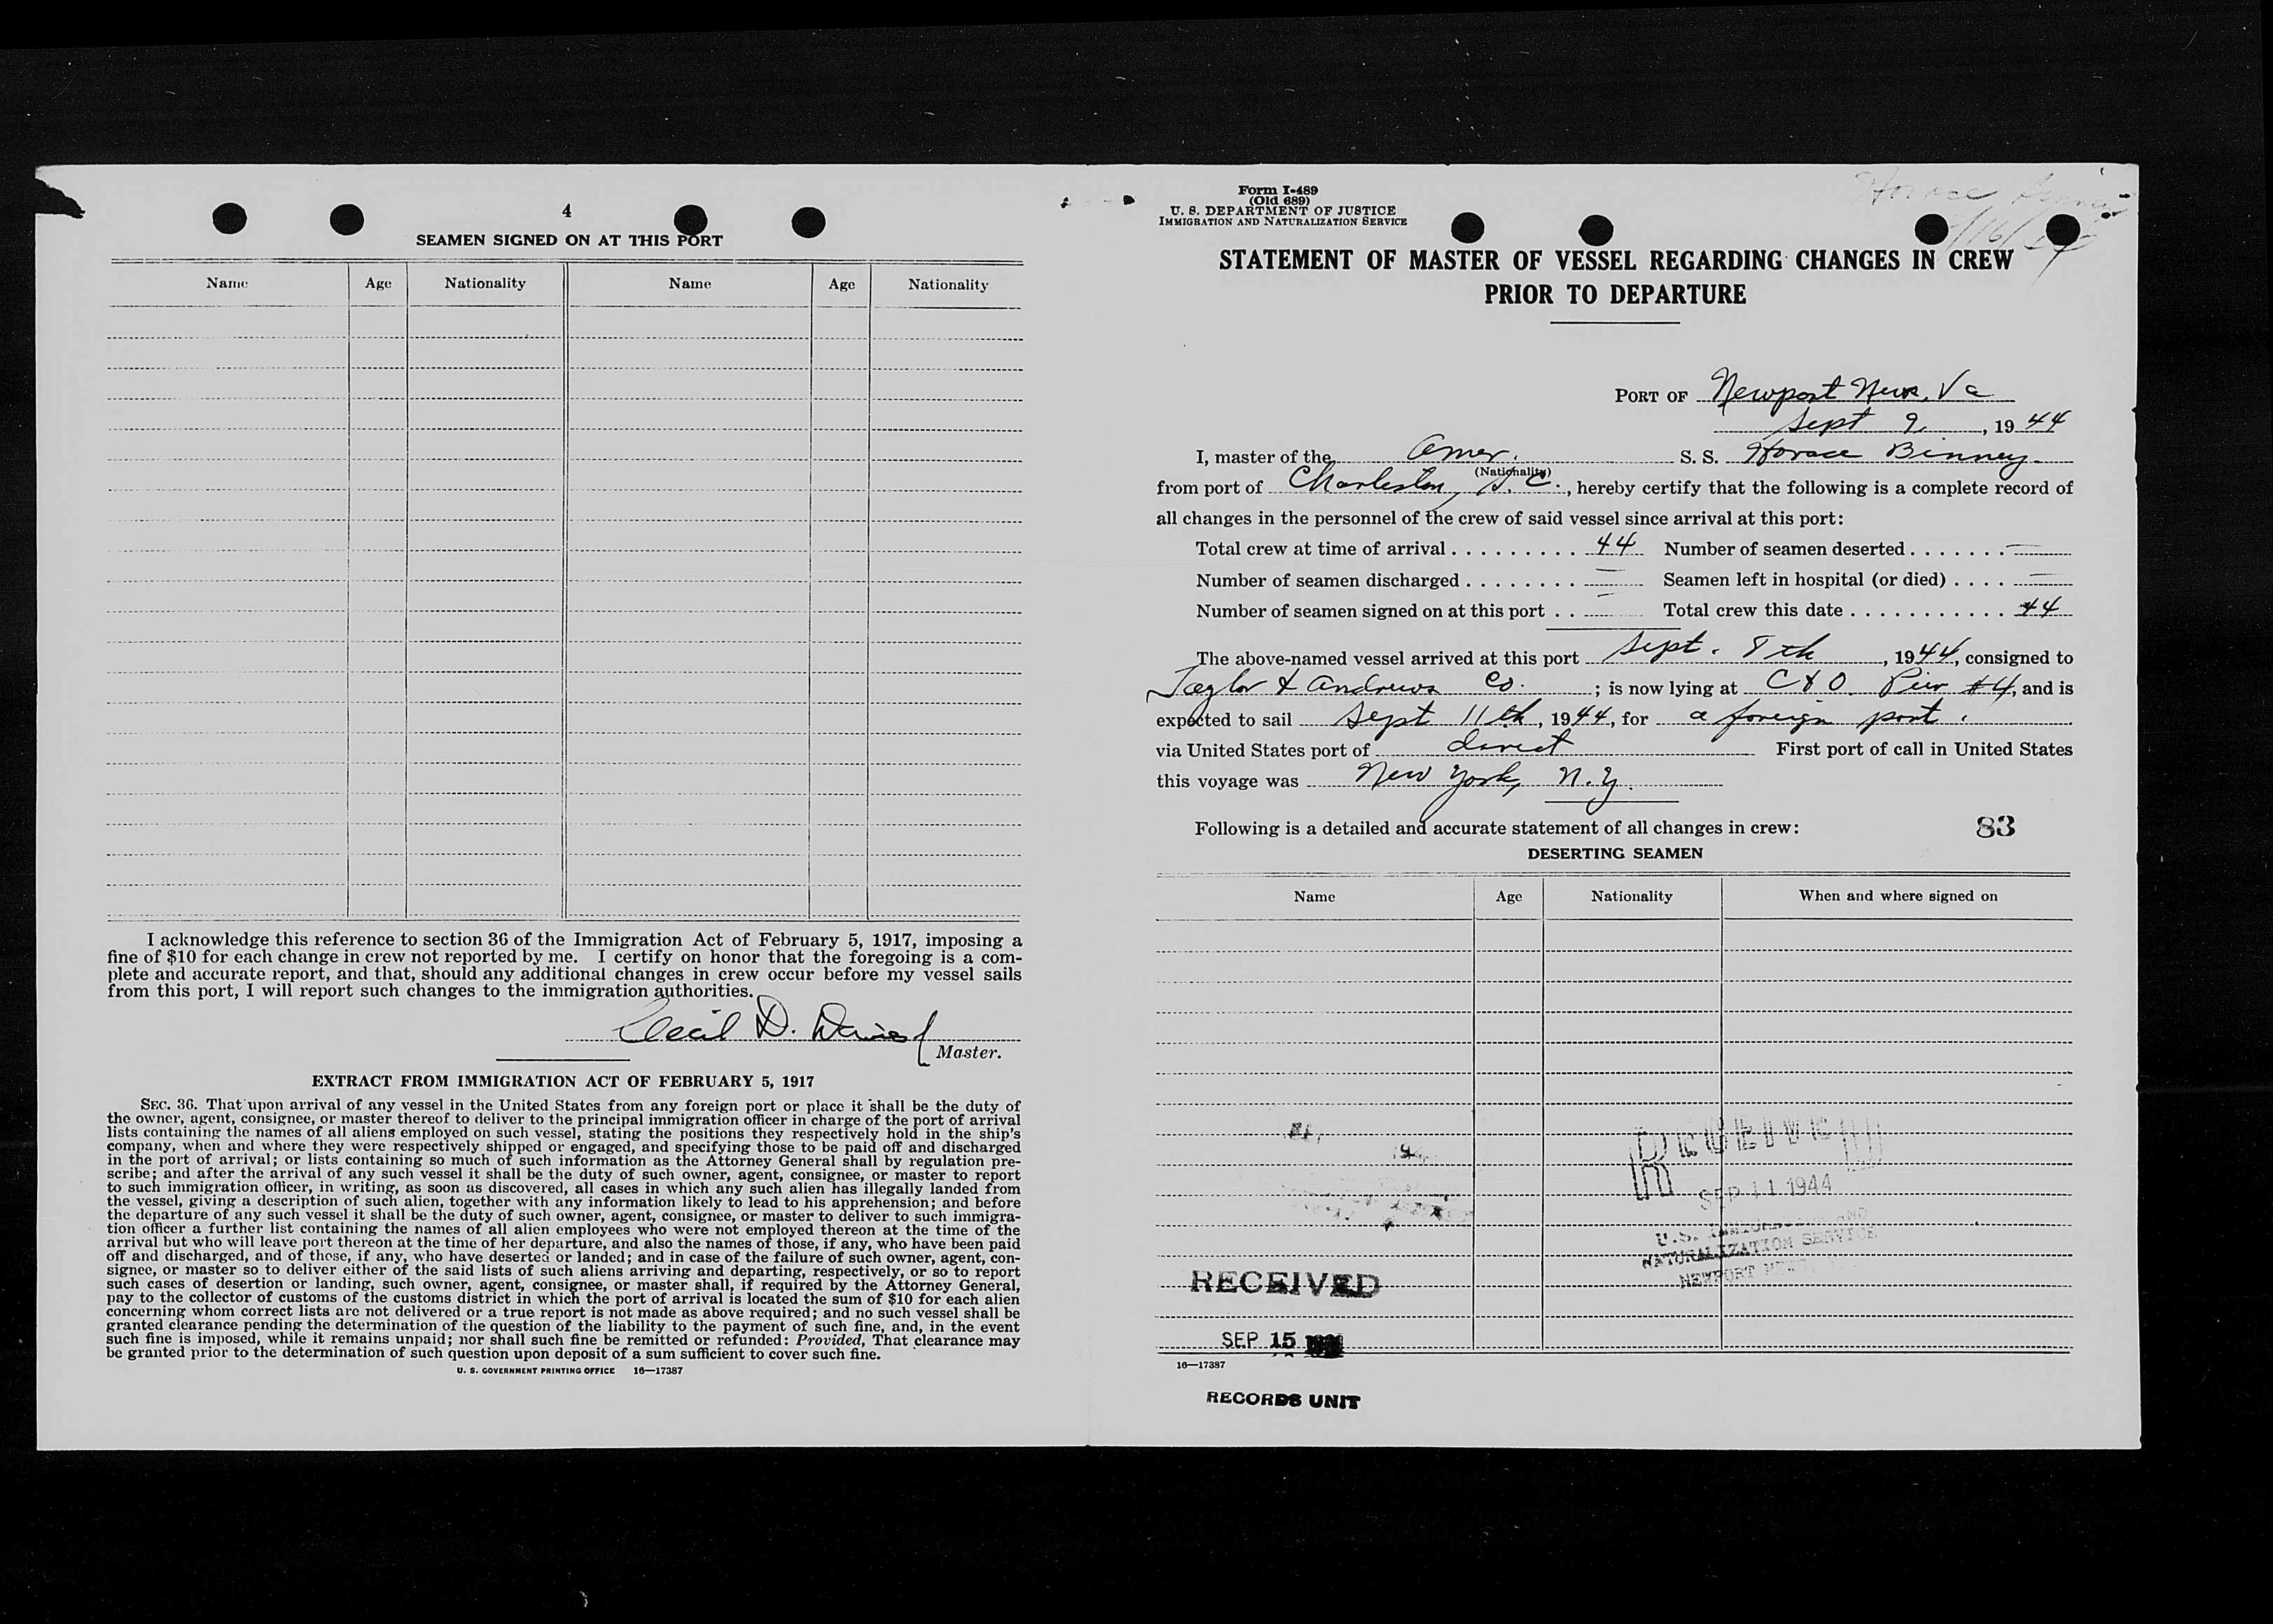 4
SEAMEN SIGNED ON AT THIS PORT
Name Age Nationality Name Age Nationality
I acknowledge this reference to section 36 of the Immigration Act of February 5, 1917, imposing a
fine of $10 for each change in crew not reported by me. I certify on honor that the foregoing is a com-
plete and accurate report, and that, should any additional changes in crew occur before my vessel sails
from this port, I will report such changes to the immigration authorities.
Cecil D.
Master.
EXTRACT FROM IMMIGRATION ACT OF FEBRUARY 5, 1917
SEC. 36. That upon arrival of any vessel in the United States from any foreign port or place it shall be the duty of
the owner, agent, consignee, or master thereof to deliver to the principal immigration officer in charge of the port of arrival
lists containing the names of all aliens employed on such vessel, stating the positions they respectively hold in the ship's
company, when and where they were respectively shipped or engaged, and specifying those to be paid off and discharged
in the port of arrival; or lists containing so much of such information as the Attorney General shall by regulation pre-
scribe; and after the arrival of any such vessel it shall be the duty of such owner, agent, consignee, or master to report
to such immigration officer, in writing, as soon as discovered, all cases in which any such alien has illegally landed from
the vessel, giving a description of such alien, together with any information likely to lead to his apprehension; and before
the departure of any such vessel it shall be the duty of such owner, agent, consignee, or master to deliver to such immigra-
tion officer a further list containing the names of all alien employees who were not employed thereon at the time of the
arrival but who will leave port thereon at the time of her departure, and also the names of those, if any, who have been paid
off and discharged, and of those, if any, who have deserted or landed; and in case of the failure of such owner, agent, con-
signee, or master so to deliver either of the said lists of such aliens arriving and departing, respectively, or so to report
such cases of desertion or landing, such owner, agent, consignee, or master shall, if required by the Attorney General,
pay to the collector of customs of the customs district in which the port of arrival is located the sum of $10 for each alien
concerning whom correct lists are not delivered or a true report is not made as above required; and no such vessel shall be
granted clearance pending the determination of the question of the liability to the payment of such fine, and, in the event
such fine is imposed, while it remains unpaid; nor shall such fine be remitted or refunded: Provided, That clearance may
be granted prior to the determination of such question upon deposit of a sum sufficient to cover such fine.
U. S. GOVERNMENT PRINTING OFFICE 16—17387
Form I-489
(Old 689)
U. S. DEPARTMENT OF JUSTICE
IMMIGRATION AND NATURALIZATION SERVICE
Horace Binney
STATEMENT OF MASTER OF VESSEL REGARDING CHANGES IN CREW
PRIOR TO DEPARTURE
PORT OF Newport News, Va
Sept 9, 1944
I, master of the Amer. S. S. Horace Binney
(Nationality)
from port of Charleston, S. C., hereby certify that the following is a complete record of
all changes in the personnel of the crew of said vessel since arrival at this port:
Total crew at time of arrival . . . . . . . . . 44 Number of seamen deserted . . . . . . . —
Number of seamen discharged . . . . . . . . — Seamen left in hospital (or died) . . . . —
Number of seamen signed on at this port . . — Total crew this date . . . . . . . . . . . 44
The above-named vessel arrived at this port Sept. 8th, 1944, consigned to
Taylor & Andrews Co. ; is now lying at C & O Pier #4, and is
expected to sail Sept 11th, 1944, for a foreign port.
via United States port of direct First port of call in United States
this voyage was New York, N.Y.
Following is a detailed and accurate statement of all changes in crew: 83
DESERTING SEAMEN
Name Age Nationality When and where signed on
RECEIVED
SEP 11 1944
U.S. IMMIGRATION AND
NATURALIZATION SERVICE
NEWPORT NEWS
RECEIVED
SEP 15
16—17387
RECORDS UNIT